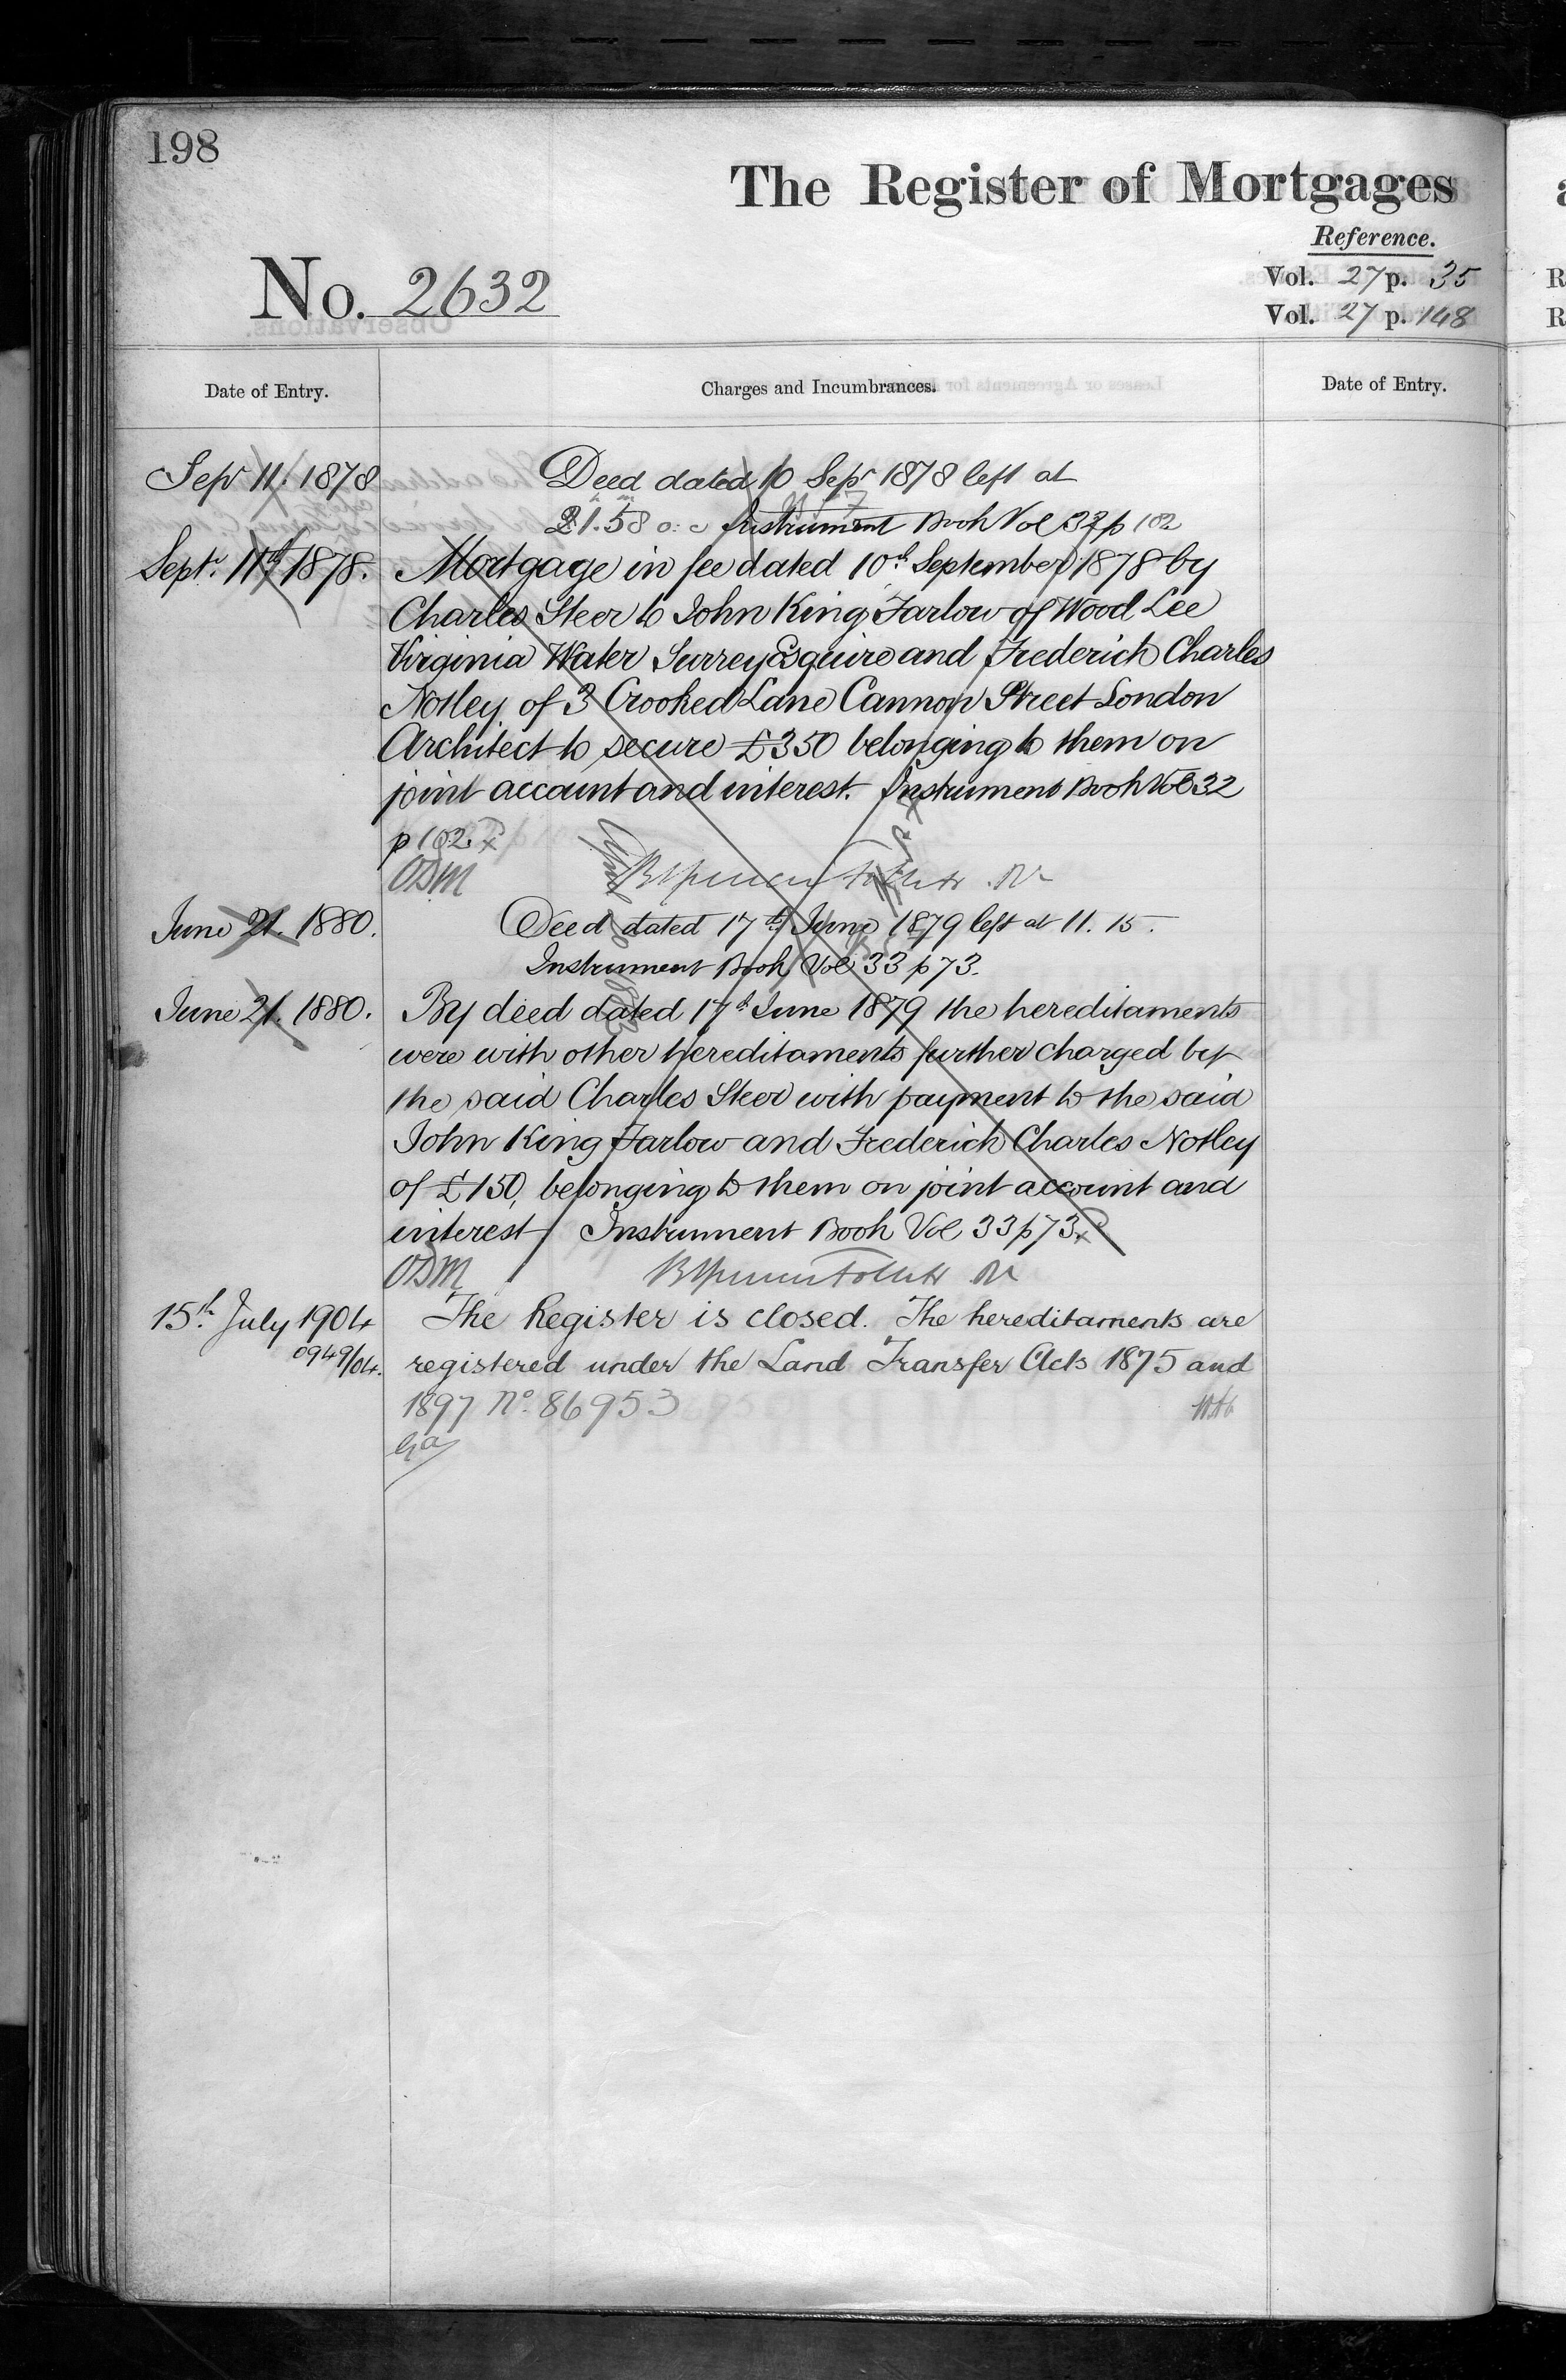 198
The Register of Mortgages
Reference.
No. 2632
Vol. 27 p. 35
Vol. 27 p. 148
Date of Entry.
Charges and Incumbrances.
Date of Entry.
Sepr 11. 1878
Deed dated 10 Sepr 1878 left at
Instrument Book Vol 32 p 182
Sept. 11th 1878.
Mortgage in fee dated 10th September 1878 by
Charles Steer to John King Farlow of Wood Lee
Virginia Water Surrey Esquire and Frederick Charles
Notley of 3 Crooked Lane Cannon Street London
Architect to secure £350 belonging to them on
joint account and interest. Instrument Book Vol 32
p 182.
ODM
June 21. 1880.
Deed dated 17th June 1879 left at 11. 15.
Instrument Book Vol 33 p 73.
June 21. 1880.
By deed dated 17th June 1879 the hereditaments
were with other hereditaments further charged by
the said Charles Steer with payment to the said
John King Farlow and Frederick Charles Notley
of £150, belonging to them on joint account and
interest Instrument Book Vol 33 p 73.
ODM
15th July 1904
The Register is closed. The hereditaments are
0949/04.
registered under the Land Transfer Acts 1875 and
1897 No. 86953